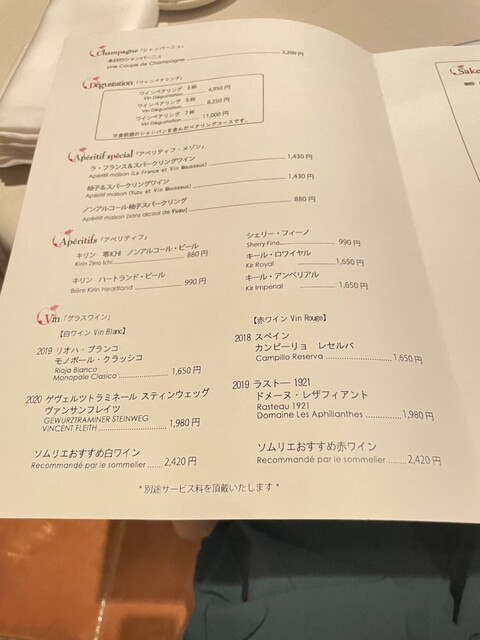 Champagne「シャンパーニュ」
本日のシャンパーニュ
Une Coupe de Champagne 2,200円
Dégustation「ワインペアリング」
ワインペアリング 3杯
Vin Dégustation 4,950円
ワインペアリング 5杯
Vin Dégustation 8,250円
ワインペアリング 7杯
Vin Dégustation 11,000円
※食前酒のシャンパンを含んだペアリングコースです。
Apéritif spécial「アペリティフ・メゾン」
ラ・フランス&スパークリングワイン
Apéritif maison (La France et Vin Mousseux) 1,430円
柚子&スパークリングワイン
Apéritif maison (Yuzu et Vin Mousseux) 1,430円
ノンアルコール柚子スパークリング
Apéritif maison (sans alcool de Yuzu) 880円
Apéritifs「アペリティフ」
キリン 零ICHI ノンアルコール・ビール
Kirin Zero Ichi 880円
キリン ハートランド・ビール
Bière Kirin Heartland 990円
シェリー・フィーノ
Sherry Fino 990円
キール・ロワイヤル
Kir Royal 1,650円
キール・アンペリアル
Kir Imperial 1,650円
Vin「グラスワイン」
【白ワイン Vin Blanc】
2019 リオハ・ブランコ
モノポール・クラッシコ
Rioja Blanco
Monopole Clasico 1,650円
2020 ゲヴェルツトラミネール スティンウェッグ
ヴァンサンフレイツ
GEWURZTRAMINER STEINWEG
VINCENT FLEITH 1,980円
ソムリエおすすめ白ワイン
Recommandé par le sommelier 2,420円
【赤ワイン Vin Rouge】
2018 スペイン
カンピーリョ レセルバ
Campillo Reserva 1,650円
2019 ラストー 1921
ドメーヌ・レザフィアント
Rasteau 1921
Domaine Les Aphillanthes 1,980円
ソムリエおすすめ赤ワイン
Recommandé par le sommelier 2,420円
*別途サービス料を頂戴いたします*
Sake